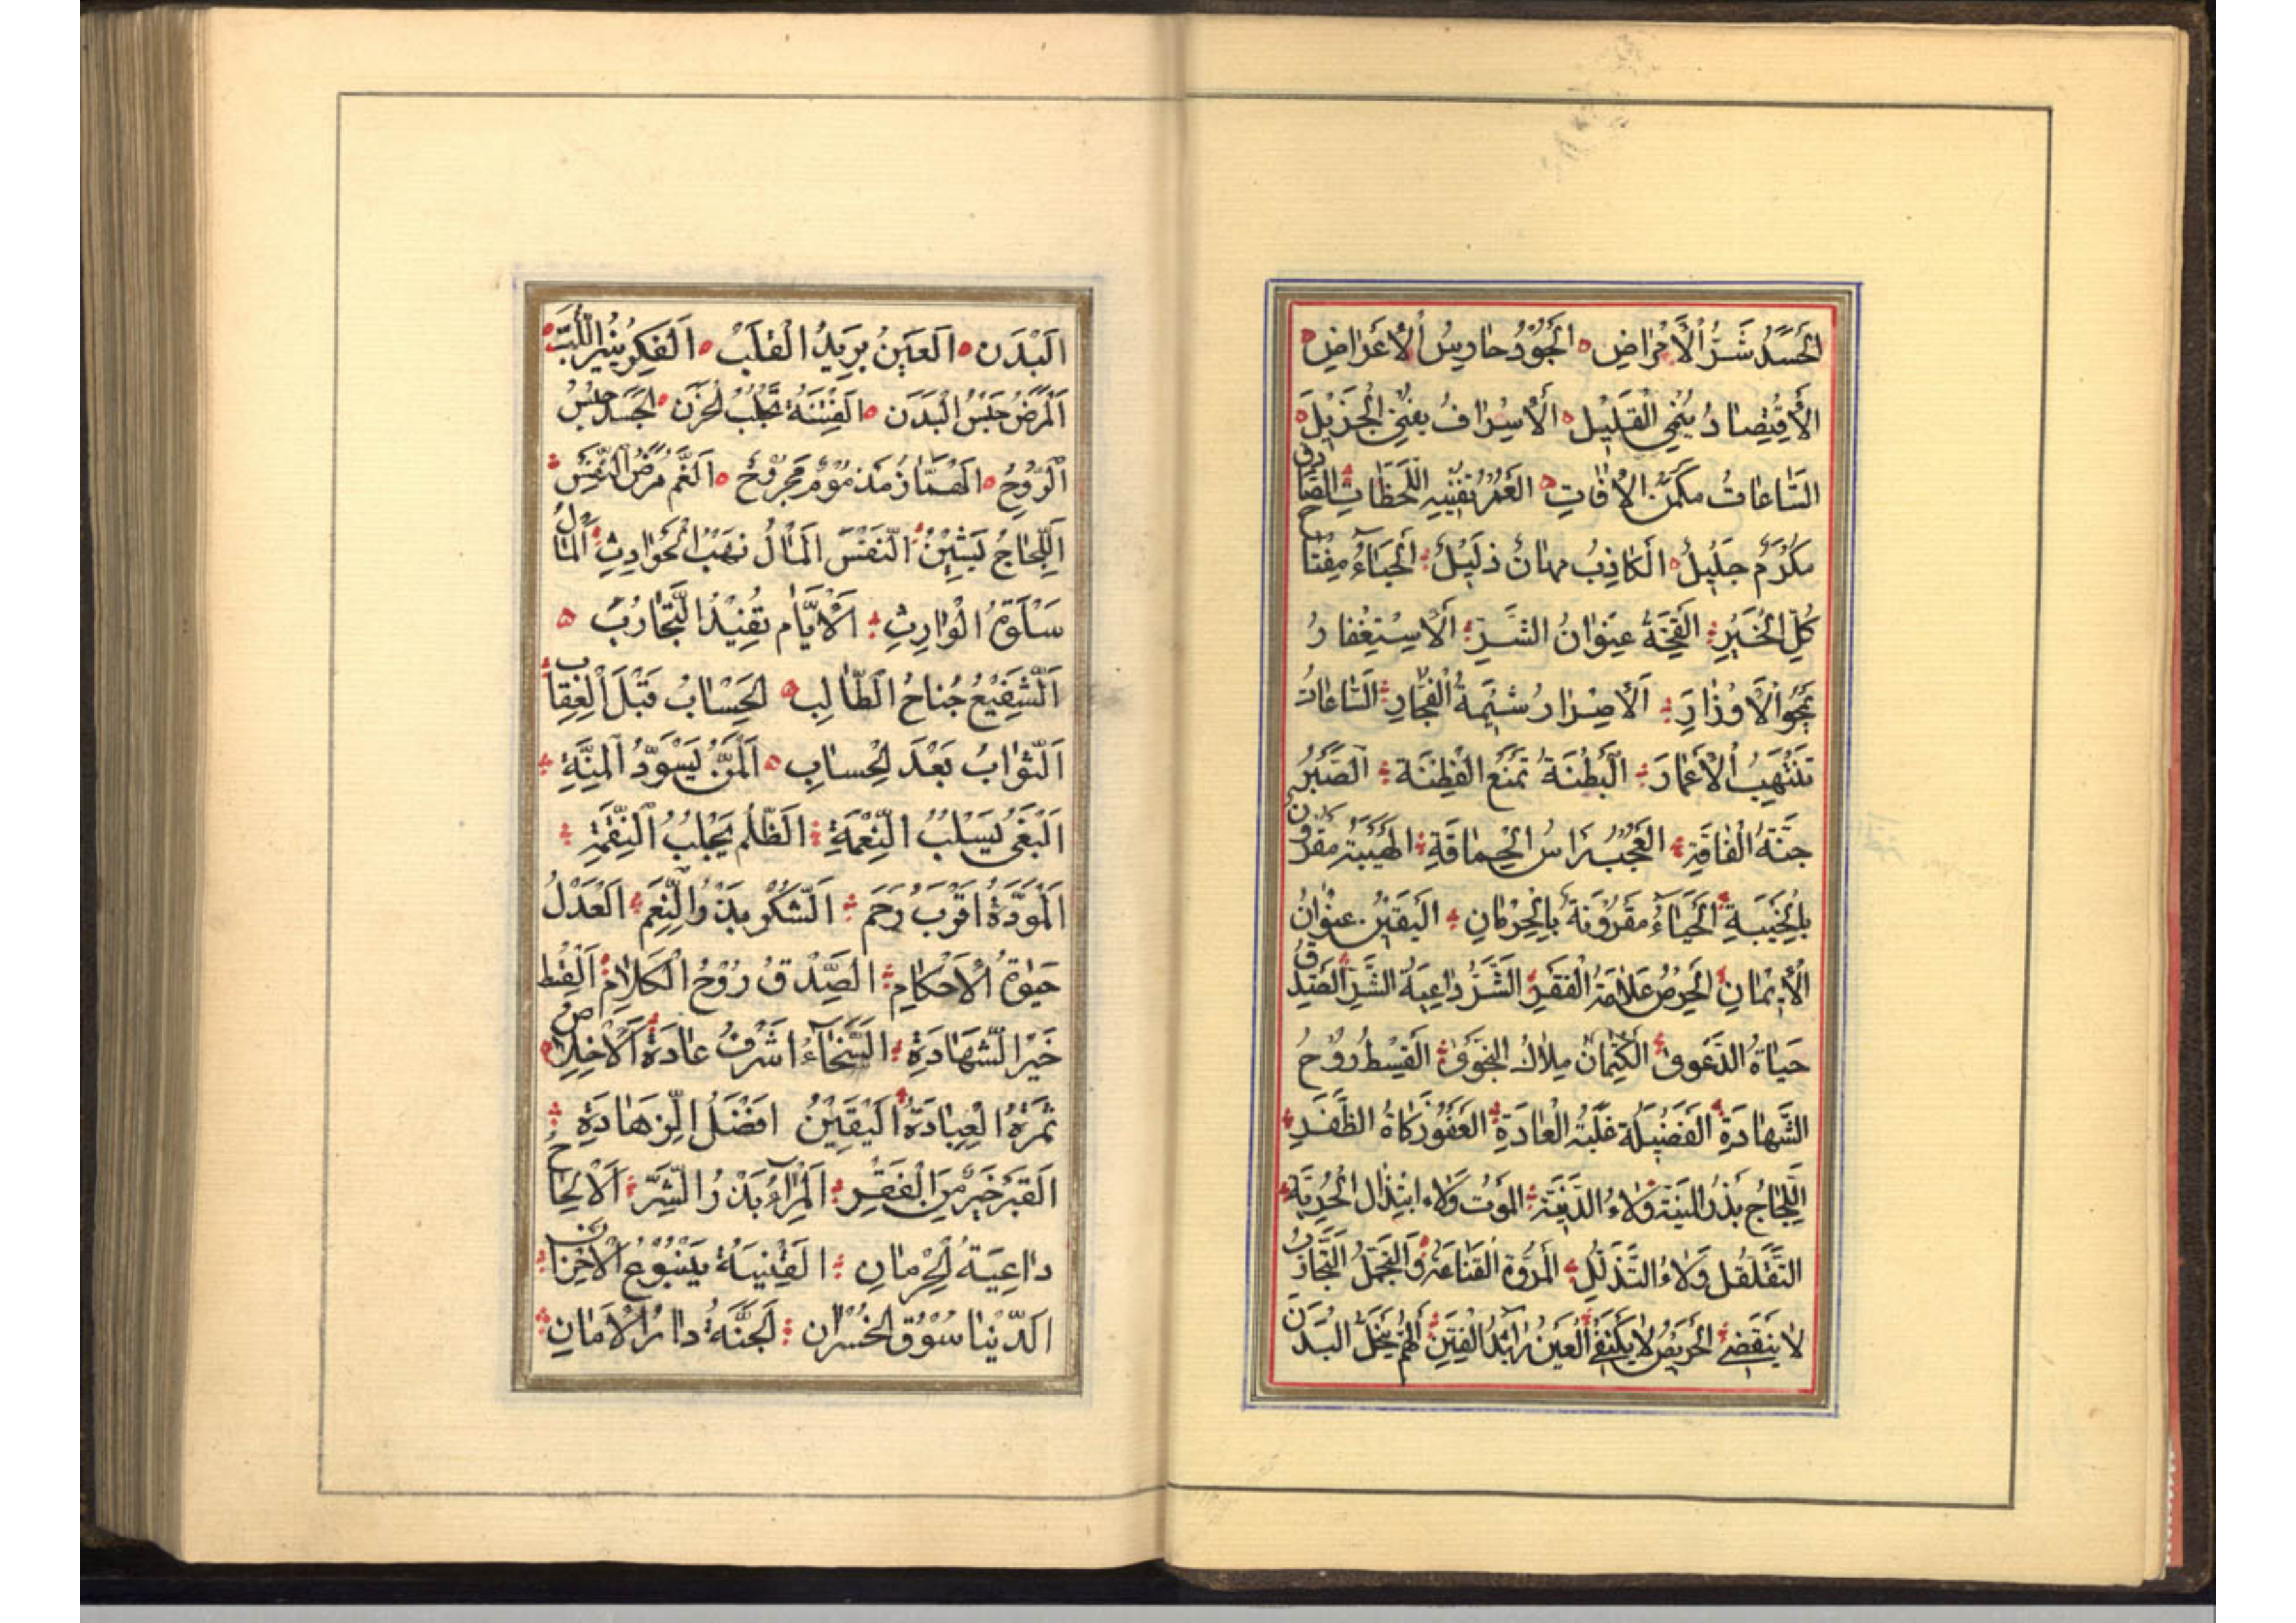 الحَسَدُ شَرُّ الْأَمْراضِ الجُوْدُ حارِسُ الْأَعْراضِ
الْأِقْتِصادُ يُنْمِي الْقَلِيْلَ الْأِسْرافُ يفني الْجَزِيْلَ
السّاعاتُ مكمن الْافاتِ العُمُر تُفْنِيهِ اللَّحَظاتِ الصّادق
مكرم جليل الكاذِبُ مهان ذليل الحَياءُ مِفْتاح
كُلِّ الْخَيْرِ القِحَةُ عنوانُ الشَّرِّ الْأِسْتِغْفارُ
يمحُو الْأَوْزارَ الْأِصْرارُ شيمةُ الفُجّارِ السّاعاتُ
تنتهبُ الْأَعْمارَ البِطْنَةُ تمنع الفِطْنَةَ الصَبْرُ
جنةُ الفاقَةِ العُجْبُ راس الحِماقَةِ الهَيْبَةُ مقرون
بِالْخَيْبَةِ الحَياءُ مقرونةٌ بِالْحِرْمانِ اليَقِيْنُ عنوانُ
الْأِيْمانِ الحِرْصُ علامةُ الْفَقْرِ الشَرُّ داعِيةُ الشَّرِّ الصِّدق
حَياةُ الدَّعْوى الكِتْمانُ مِلاكُ النجوى القِسْطُ رُوْحُ
الشَّهادَةِ الفَضِيلَة غلبةُ الْعادَةِ العَفْو زكاةُ الظَّفَرِ
اللِّجاجُ بذر وَلاءُ الموت وَلاء ابتذال الحُرِيّةِ
التَّقَلْقُل وَلاءُ التَّذَلُّلِ المُرُوّة القَناعَة وَالتجمل التَّجارب
لا ينقضي الحريصُ لا يكتفي العينُ رائدُ الفِتَن الهَمّ ينحل البَدَن
الْبَدَن العَيْنُ بَرِيدُ الْقَلْبِ الْفِكْرُ يُنِيرُ اللُّبَّ
الْمَرَضُ حَبْسُ الْبَدَن الفِتْنَةُ تَجْلبُ الحزن الجَسَد حبسُ
الرُّوْحِ الهَمّازُ مَذْمُومٌ مَجْرُوحٌ الغَمُّ مَرَضُ النَّفْسِ
اللِّجاجُ يَشِيْنُ النَّفْسَ المالُ نَهْبُ الْحَوادِثِ المالُ
سَلْوَةُ الْوارِثِ الْأَيّامُ تُفِيْدُ التَّجارُبَ
الشَّفِيْعُ جَناحُ الطّالِبِ الحِسابُ قَبْلَ الْعِقابِ
الثَّوابُ بَعْدَ الْحِسابِ المَنُّ يُسَوِّدُ الْمِنَّةِ
البَغْي يَسْلُبُ النِّعْمَةِ الظُّلْمُ يَجْلِبُ النِّقْمَةِ
الْمَوَدَّةُ اقْرَبُ رَحِم الشُّكْر بذر النِّعَمِ العَدْلُ
حَيٰوةُ الْأَحْكامِ الصِّدْقُ رُوْحُ الْكَلامِ القِسْط
خَيْر الشَّهادَةِ السَّخاءُ اشْرَفُ عادَة الْاِخْلاص
ثَمَرَةُ الْعِبادَةِ اليَقِيْنُ افْضَلُ الزَّهادَةِ
القَبْرُ خَيْرٌ مِنَ الْفَقْرِ المِراءُ بَذْرُ الشَّرِّ الْالْحاحُ
داعِيَةُ الْحِرْمانِ القِنْيَةُ يَنْبُوْعُ الْأَحْزان
الدُّنْيا سُوْقُ الخُسْران الجَنَّةُ دارُ الْأَمانِ